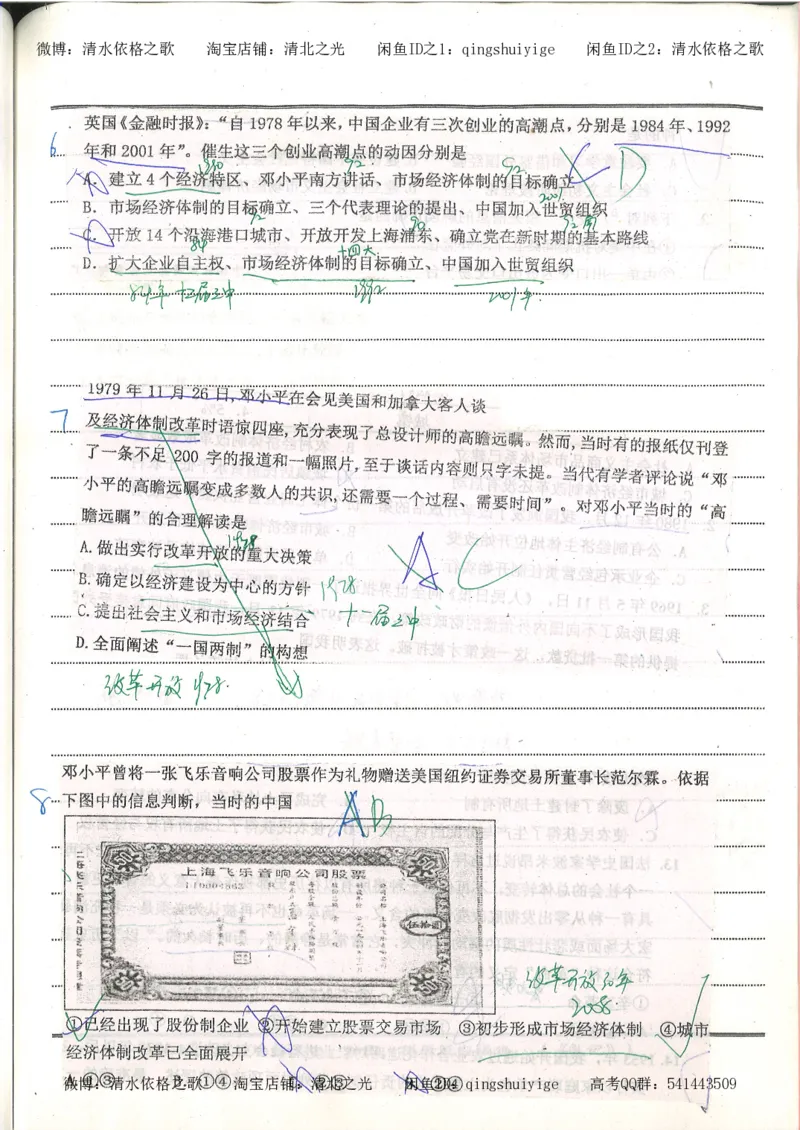 微博：清水依格之歌 淘宝店铺：清北之光 闲鱼ID之1：qingshuiyige 闲鱼ID之2：清水依格之歌
6
英国《金融时报》：“自 1978 年以来，中国企业有三次创业的高潮点，分别是 1984 年、1992
年和 2001 年”。催生这三个创业高潮点的动因分别是
1980 92 92
A. 建立 4 个经济特区、邓小平南方讲话、市场经济体制的目标确立
D
B. 市场经济体制的目标确立、三个代表理论的提出、中国加入世贸组织
92 2001
C. 开放 14 个沿海港口城市、开放开发上海浦东、确立党在新时期的基本路线
84 90
D. 扩大企业自主权、市场经济体制的目标确立、中国加入世贸组织
十四大
1992 2001年.
7
1979 年 11 月 26 日，邓小平在会见美国和加拿大客人谈
及经济体制改革时语惊四座，充分表现了总设计师的高瞻远瞩。然而，当时有的报纸仅刊登
了一条不足 200 字的报道和一幅照片，至于谈话内容则只字未提。当代有学者评论说“邓
小平的高瞻远瞩变成多数人的共识，还需要一个过程、需要时间”。对邓小平当时的“高
瞻远瞩”的合理解读是
1978
A.做出实行改革开放的重大决策
A C
B.确定以经济建设为中心的方针 1978
C.提出社会主义和市场经济结合 十一届三中
D.全面阐述“一国两制”的构想
改革开放 1978.
8
邓小平曾将一张飞乐音响公司股票作为礼物赠送美国纽约证券交易所董事长范尔霖。依据
下图中的信息判断，当时的中国
A B
上海飞乐音响公司股票
伍拾圆
改革开放30年
2008.
①已经出现了股份制企业 ②开始建立股票交易市场 ③初步形成市场经济体制 ④城市
经济体制改革已全面展开
A.①③ B.①④ C.②③ D.②④
微博：清水依格之歌 淘宝店铺：清北之光 闲鱼ID：qingshuiyige 高考QQ群：541443509